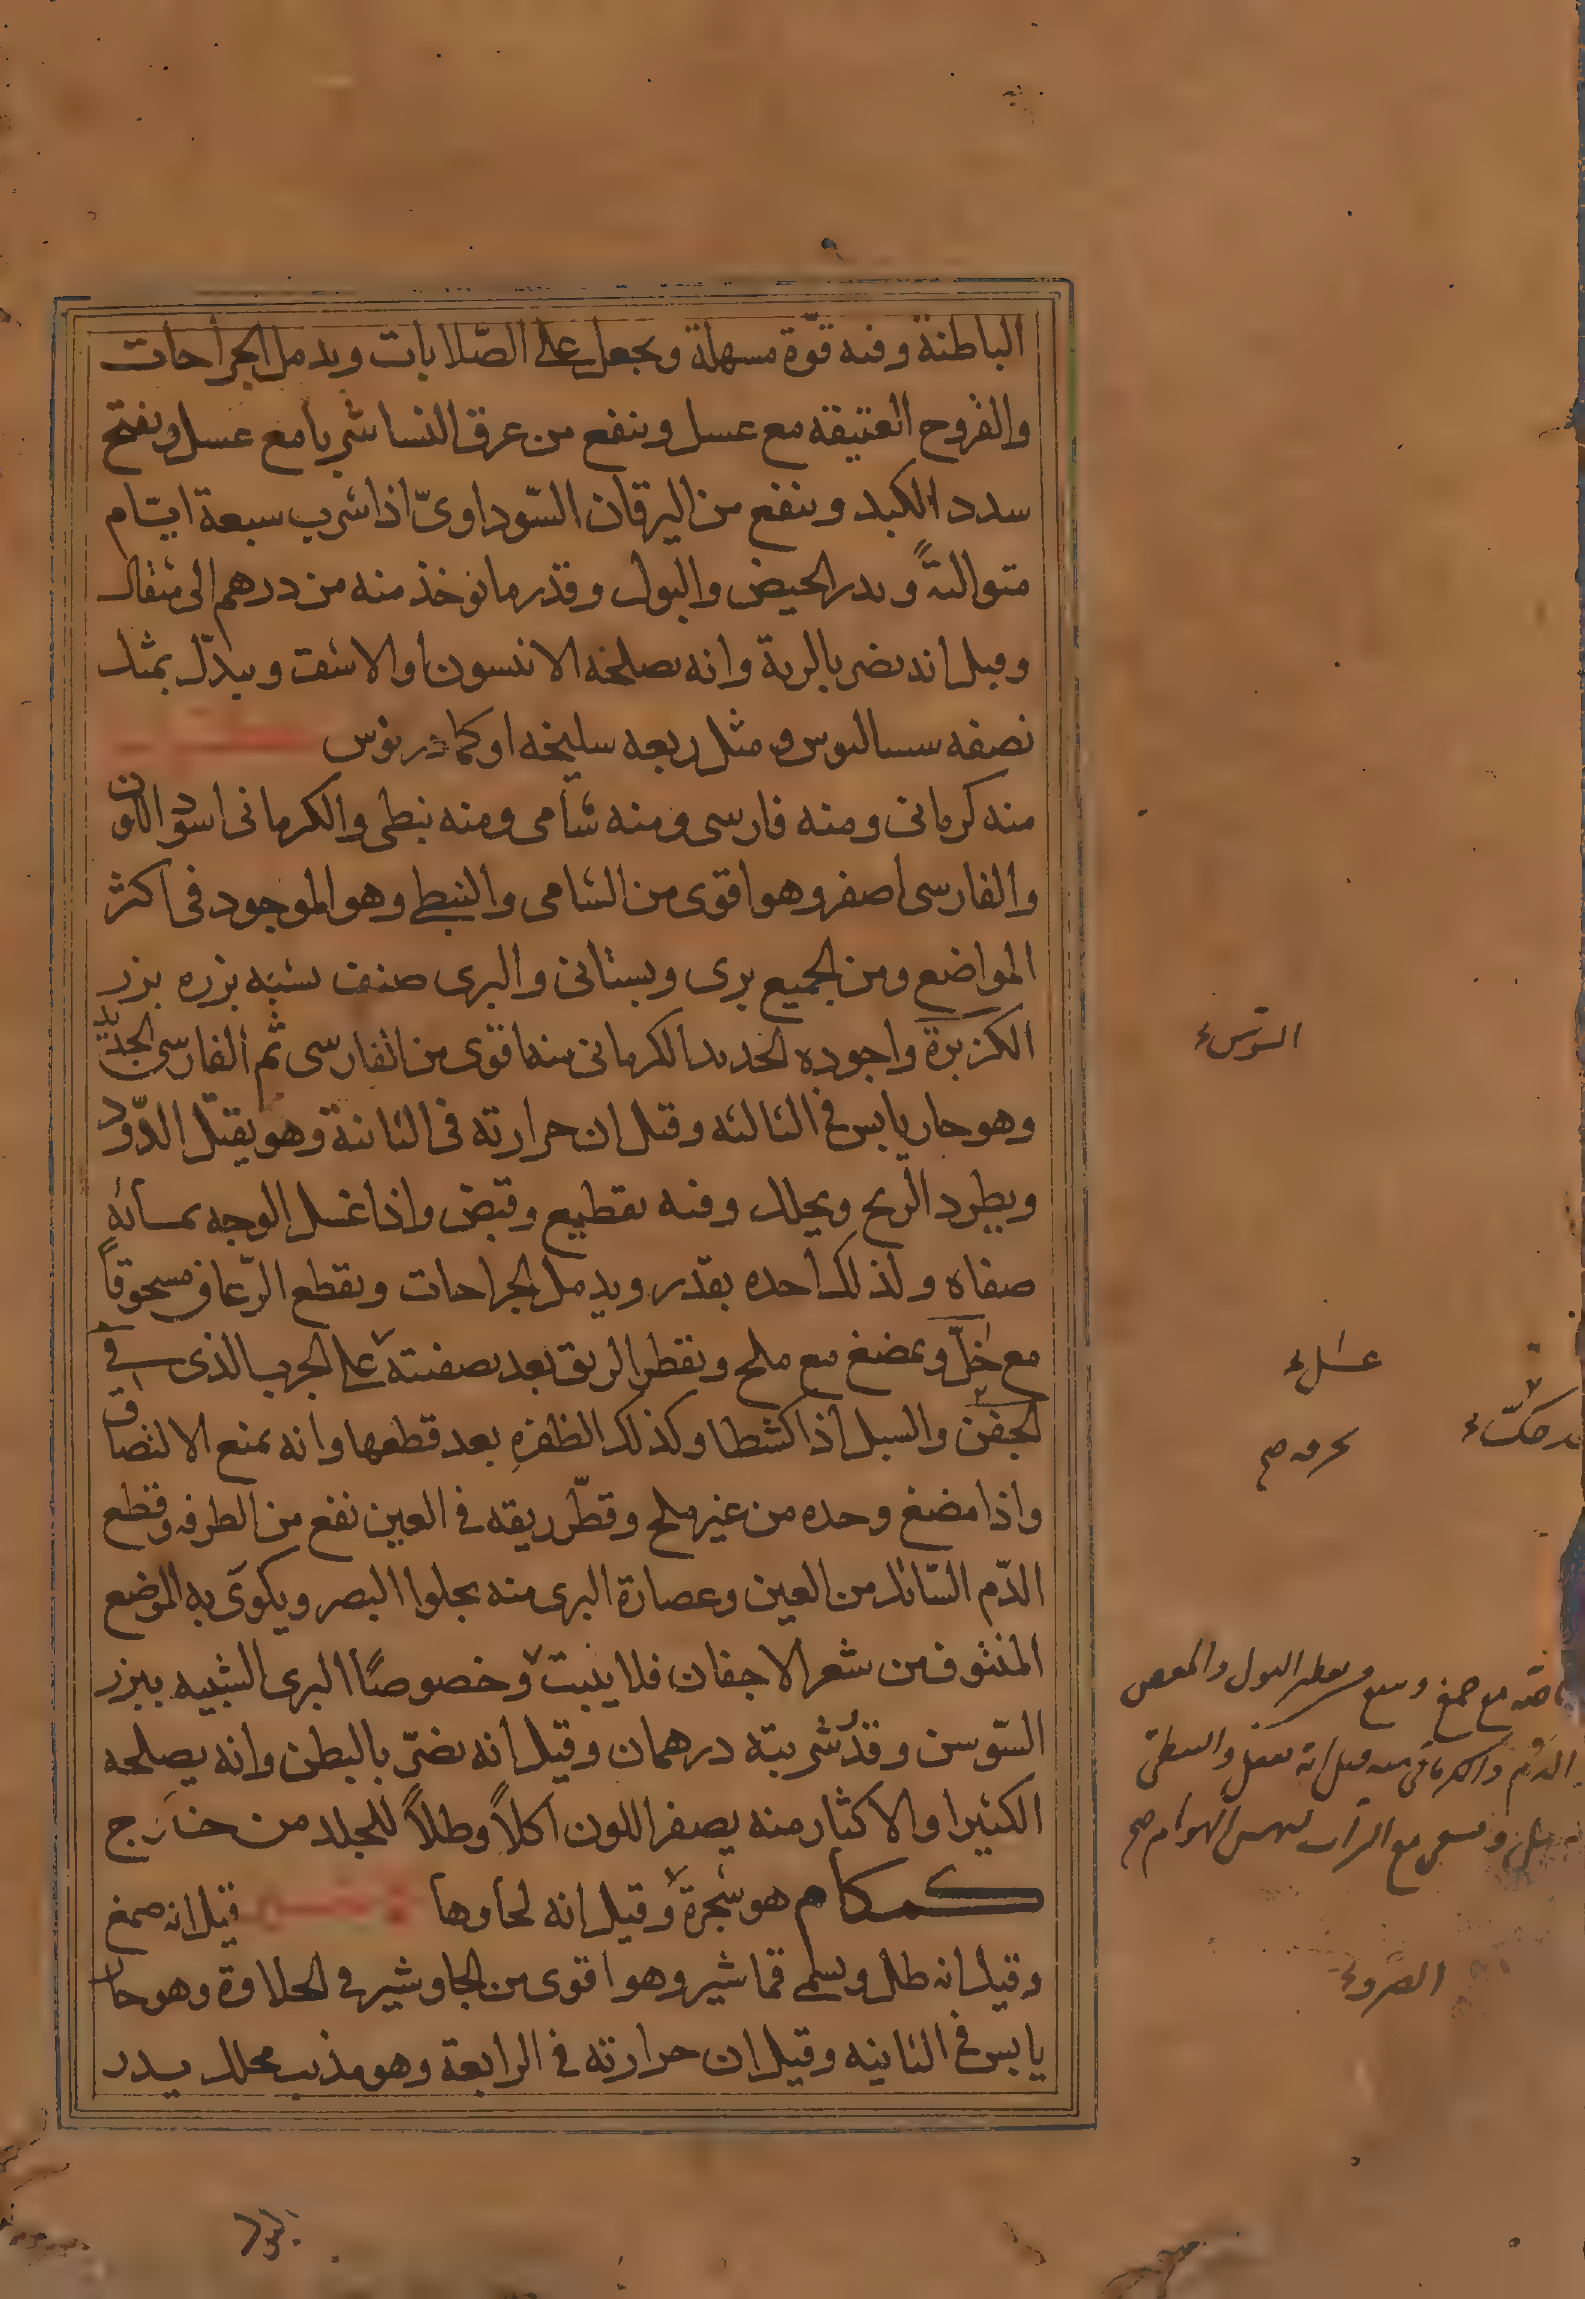 الباطنة وفيه قوّة مسهلة ويجعل على الصّلابات ويدمل الجراحات
والقروح العتيقة مع عسل وينفع من عرق النسا شربا مع عسل ويفتح
سدد الكبد وينفع من اليرقان السّوداوىّ اذا شرب سبعة ايّام
متوالية ويدر الحيض والبول وقدر ما يوخذ منه من درهم الى مثقال
وقيل انه يضر بالرية وانه يصلحه الانيسون او الاشق ويبدّل بمثل
نصفه سساليوس ومثل ربعه سليخه او كمادريوس
منه كرمانى ومنه فارسى ومنه شامى ومنه نبطى والكرمانى اسود اللون
والفارسى اصفر وهو اقوى من الشامى والنبطى وهو الموجود فى اكثر
المواضع ومن الجميع برى وبستانى والبرى صنف يشبه بزره بزر
الكزبرة واجوده الحديد الكرمانى منه اقوى من الفارسى ثم الفارسى الجديد
وهو حار يابس فى الثالثه وقيل ان حرارته فى الثانية وهو يقتل الدّود
ويطرد الريح ويحلل وفيه تقطيع وقبض واذا غسل الوجه بمائه
صفاه ولذلك اخذه بقدر ويدمل الجراحات ويقطع الرّعاف مسحوقاً
مع خلّ ويمضغ مع ملح ويقطر الريق بعد تصفيته على الجرب الذى فى
الجفن والسبل اذا كشطا وكذلك الظفرة بعد قطعها وانه يمنع الالتصاق
واذا مضغ وحده من غير ملح وقطّر ريقه فى العين نفع من الطرفه وقطع
الدّم السّائل من العين وعصارة البرى منه يجلوا البصر ويكوى به الموضع
المنتوف من شعر الاجفان فلا ينبت وخصوصاً البرى الشبيه ببزر
السّوسن وقدر شربته درهمان وقيل انه يضرّ بالبطن وانه يصلحه
الكثيرا والاكثار منه يصفر اللون اكلاً وطلاً للجلد من خارج
كمكام هو شجرة وقيل انه لحاوها قيل انه صمغ
وقيل انه طل ويسمى قماشير وهو اقوى من الجاوشير فى الحلاوة وهو حار
يابس فى الثانيه وقيل ان حرارته فى الرابعة وهو مذيب محلل يدر
عسل
صح
مع صمغ البول
الدم والكرمانى منه قيل انه
مع الشراب لنهس الهوام صح
الضرو